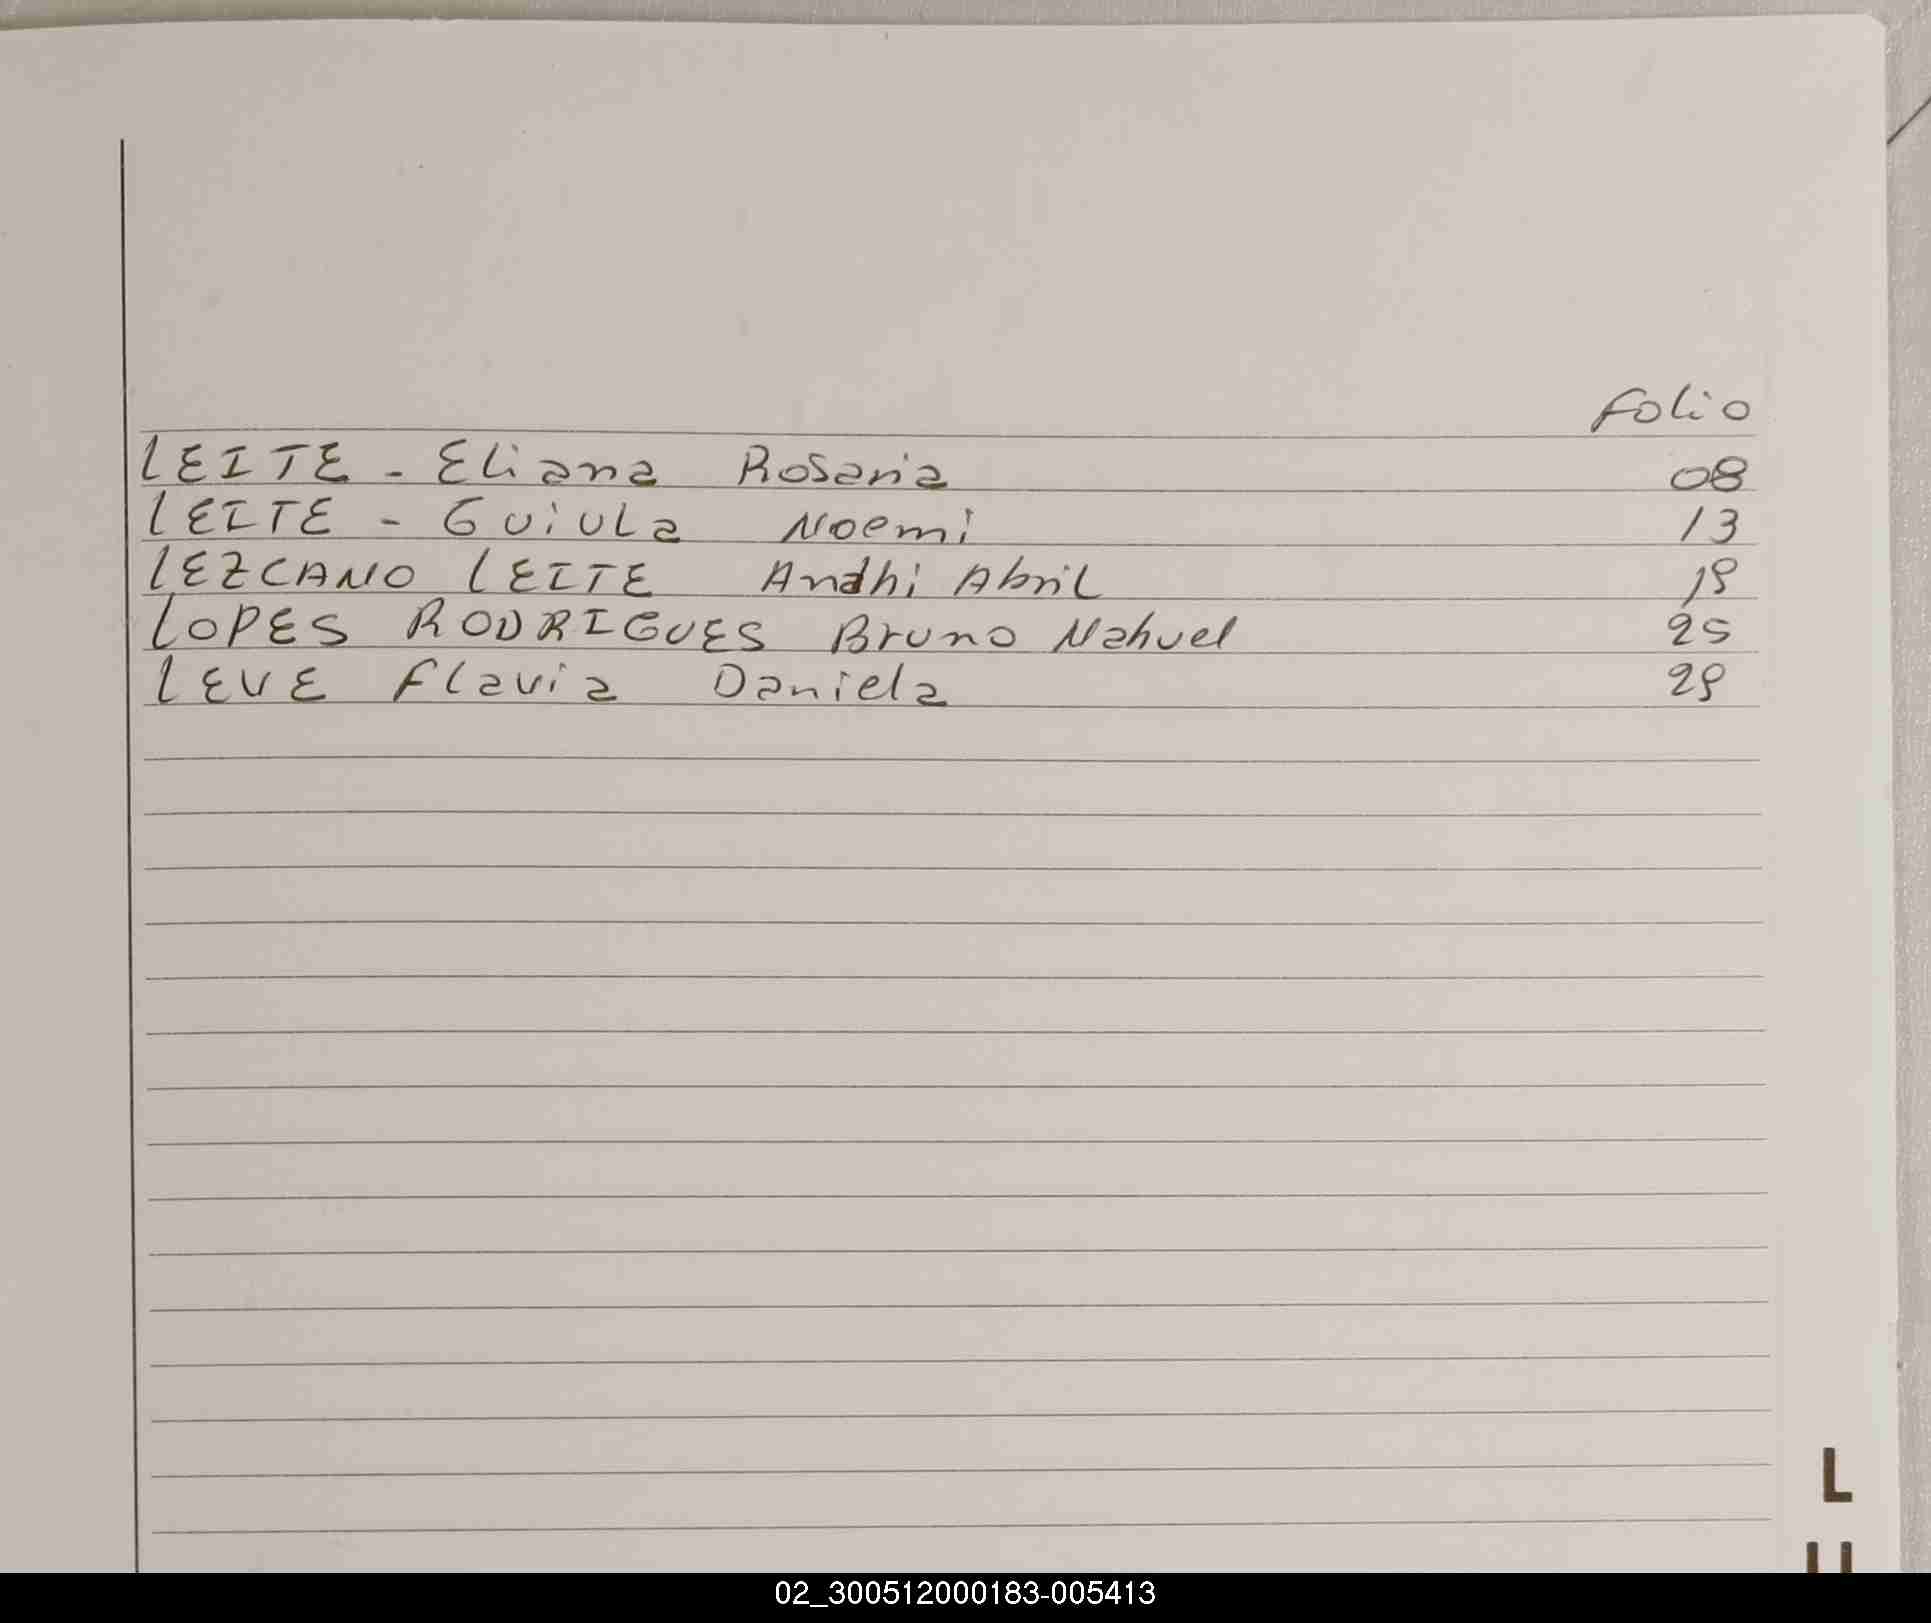 Folio
LEITE - Eliana Rosaria 08
LEITE - Guiula Noemi 13
LEZCANO LEITE Andhi Abril 19
LOPES RODRIGUES Bruno Nahuel 25
LEVE Flavia Daniela 29
L
02_300512000183-005413